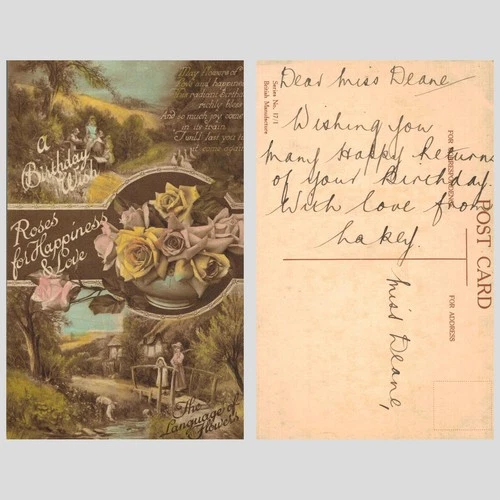 May flowers of
Hope and happiness
this radiant Birthday
richly bless
And so much joy come
in its train
'T will last you till
it come again
a
Birthday
Wish
Roses
for Happiness
& Love
The
Language of
Flowers
Series No. 17/1
British Manufacture
Dear Miss Deane
Wishing you
Many Happy Returns
of your Birthday
With love from
Lakey.
POST CARD
FOR ADDRESS
Miss Deane,